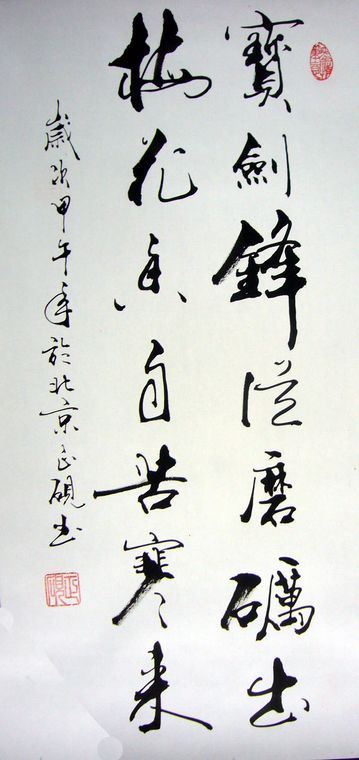 寶劍鋒從磨礪出
梅花香自苦寒來
歲次甲午年於北京正硯書